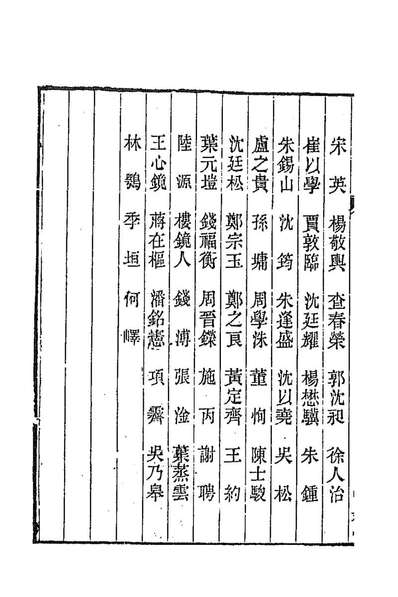 宋英　楊敬輿　查春榮　郭沈昶　徐人治
崔以學　賈敦臨　沈廷耀　楊懋驥　朱鍾
朱錫山　沈筠　朱逢盛　沈以堯　吳松
盧之貴　孫墉　周學洙　董恂　陳士駿
沈廷松　鄭宗玉　鄭之良　黃定齊　王約
葉元塏　錢福衡　周晉鑅　施丙　謝聘
陸源　樓鏡人　錢溥　張淦　葉蒸雲
王心鏡　蔣在樞　潘銘憲　項霽　吳乃皋
林鶚　季垣　何嶧